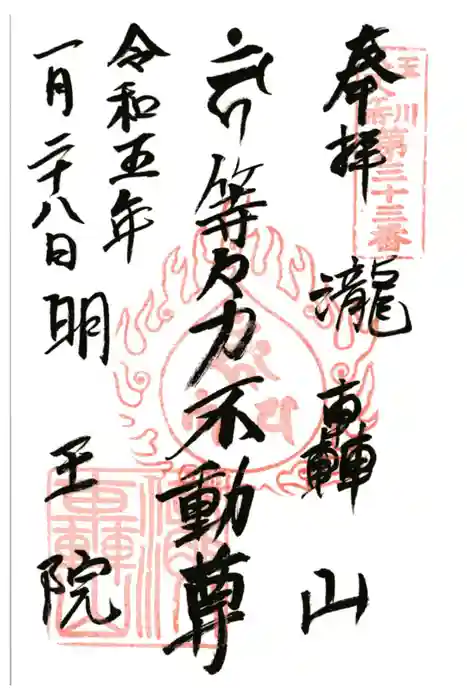 玉川
第三十三番
奉拝 瀧轟山
等々力不動尊
令和五年
一月二十八日 明王院
瀧轟山